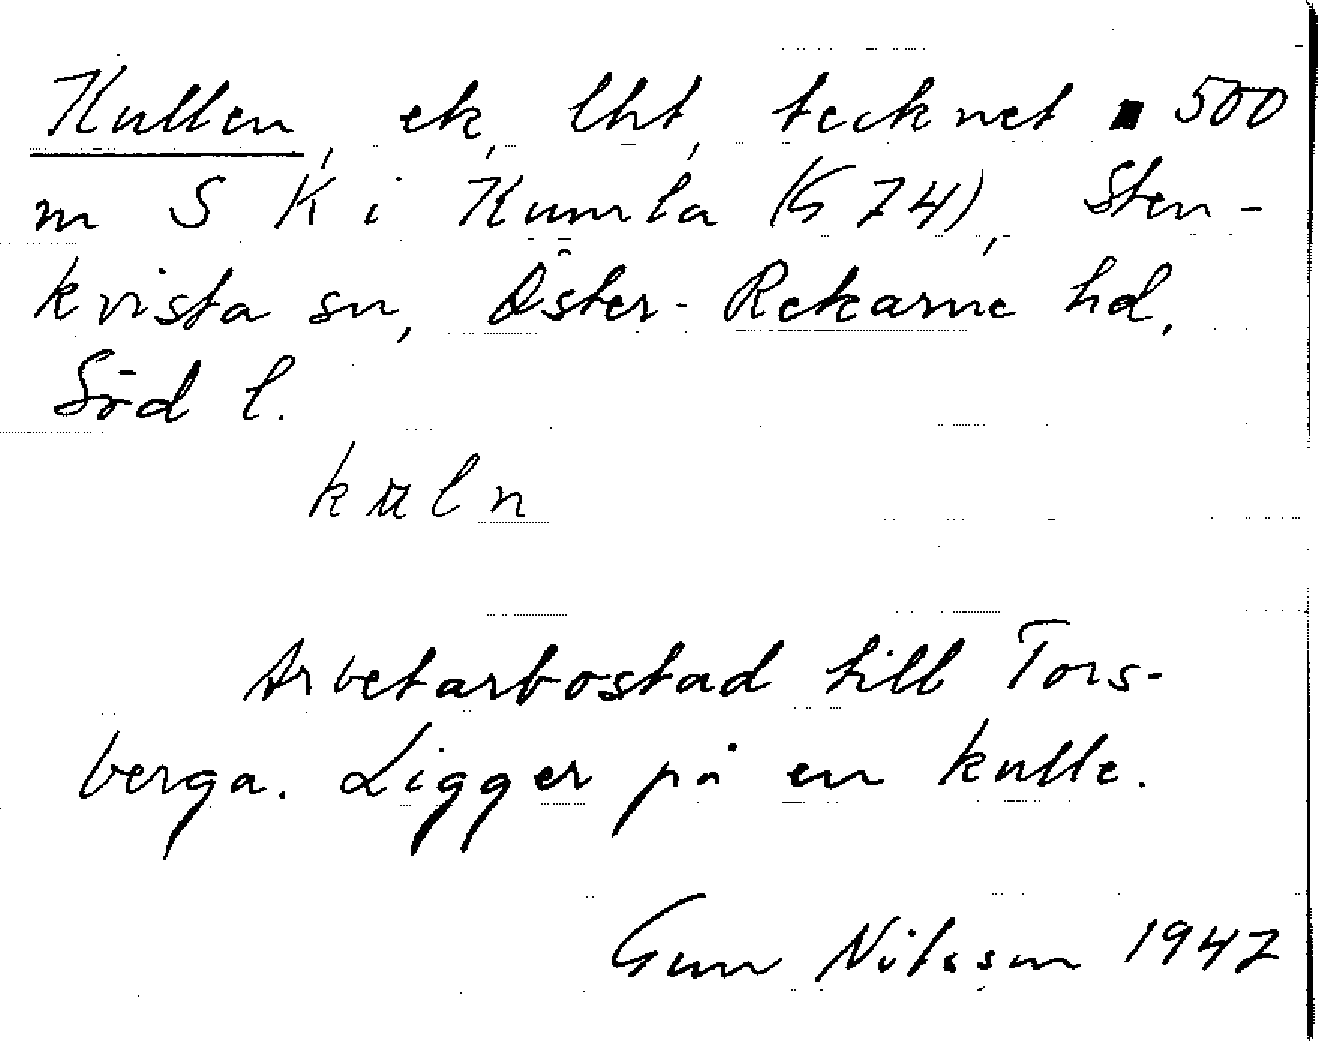 Kullen, ek, lht, tecknet ■ 500
m S K i Kumla (G 74), Sten-
kvista sn, Öster-Rekarne hd,
Söd l.
kuln
Arbetarbostad till Tors-
berga. Ligger på en kulle.
Gun Nilsson 1947